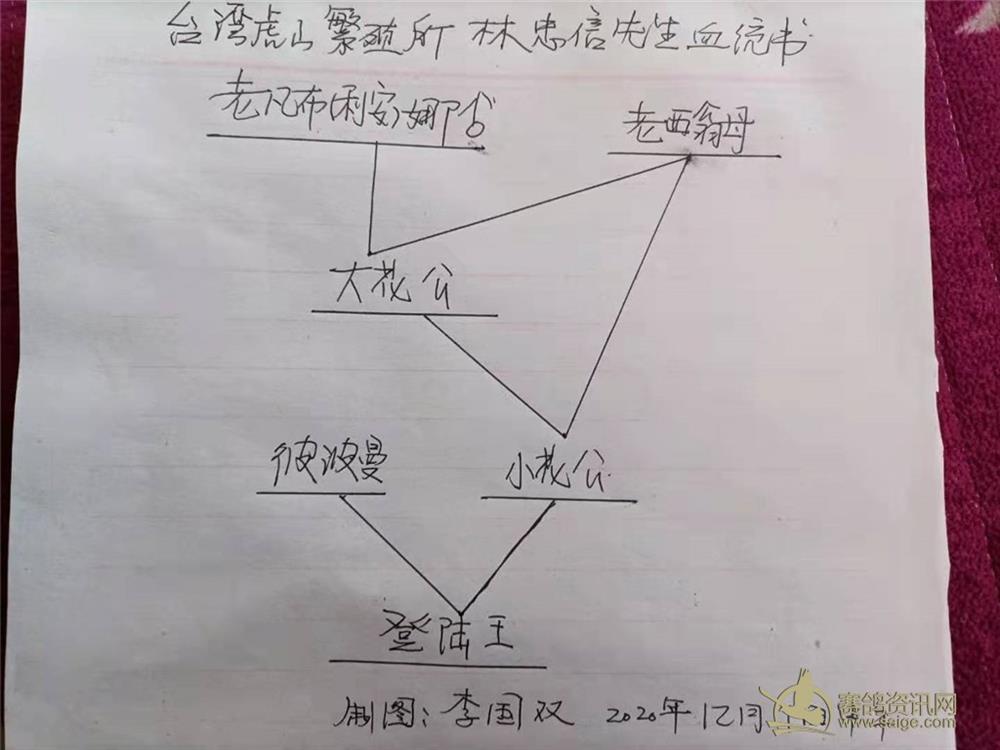 台湾虎山繁殖所 林忠信先生血统书
老凡布(利安)娜 老西翁母
大花公
彼波曼 小花公
登陆王
制图:李国双 2020年12月
赛鸽资讯网
www.saige.com